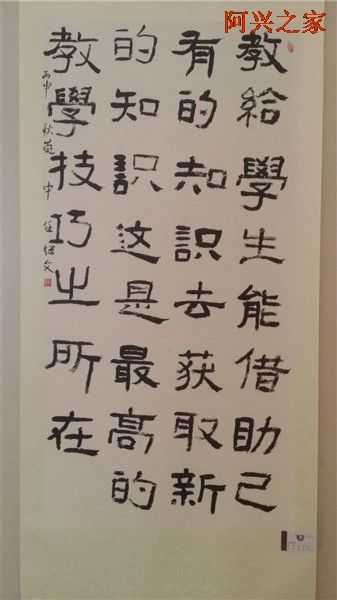 阿兴之家
教給學生能借助已
有的知識去获取新
的知識这是最高的
教學技巧之所在
丙申 秋 中